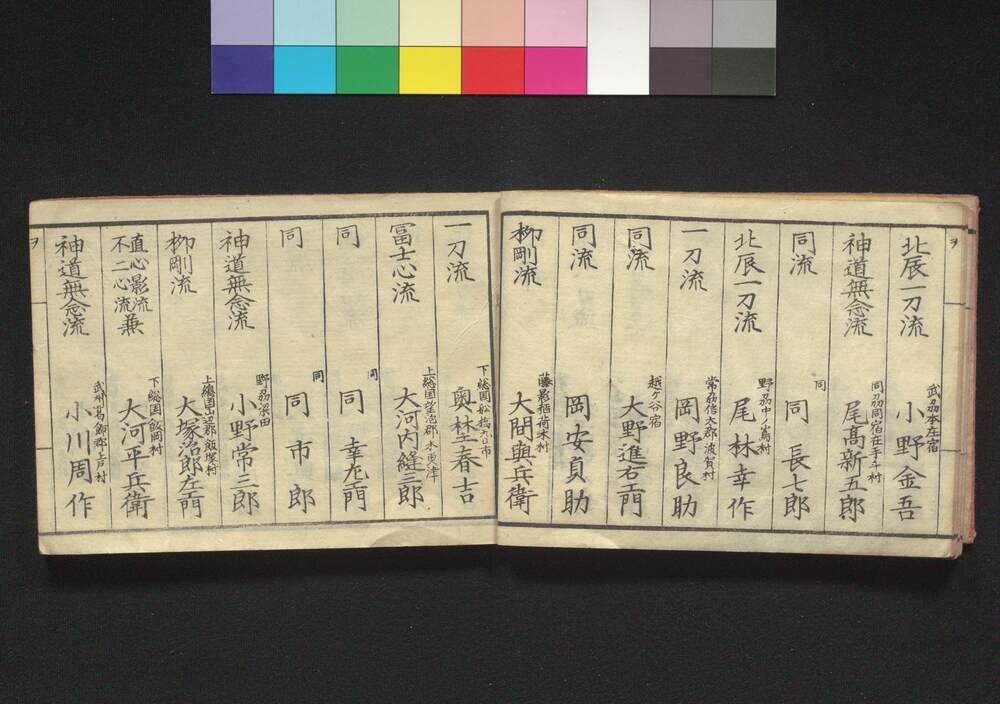 ヲ
北辰一刀流
武刕本庄宿
小野金吾
神道無念流
同刕同宿在手斗村
尾髙新五郎
同流
同
同長七郎
北辰一刀流
野刕中ノ嶌村
尾林幸作
一刀流
常刕信太郡波賀村
岡野良助
同流
越ケ谷宿
大野進右エ門
同流
岡安貞助
柳剛流
藤影稲荷木村
大間與兵衛
一刀流
下総国舩橋小日市
奥林春吉
冨士心流
上総国望陀郡木更津
大河内縫三郎
同
同
同幸左エ門
同
同
同市郎
神道無念流
野刕浜田
小野常三郎
柳剛流
上總国山辺郡飯塚村
大塚治郎左エ門
直心影流
不二心流
兼
下総国飯岡村
大河平兵衛
神道無念流
武州葛飾郡上戸村
小川周作
ヲ